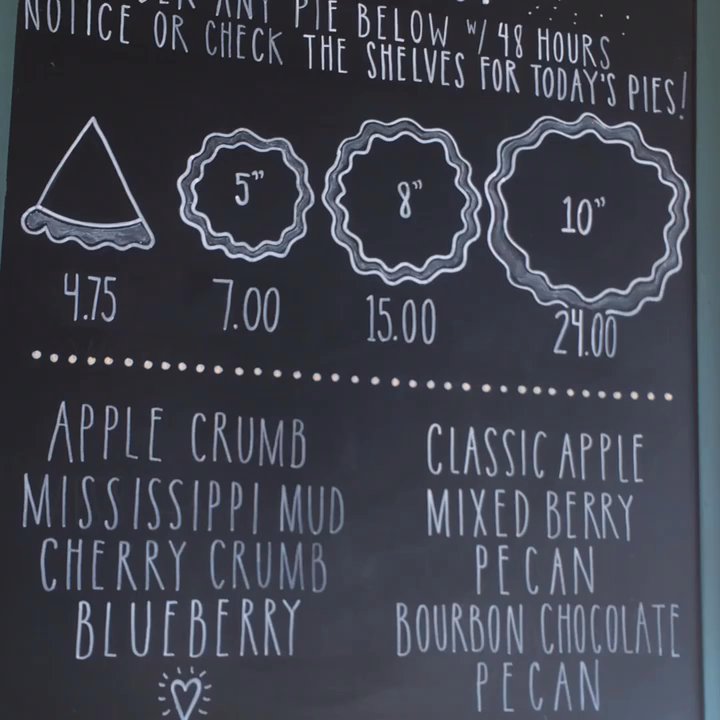 ANY PIE BELOW w/ 48 HOURS
NOTICE OR CHECK THE SHELVES FOR TODAY'S PIES!
5"
8"
10"
4.75
7.00
15.00
24.00
APPLE CRUMB
MISSISSIPPI MUD
CHERRY CRUMB
BLUEBERRY
CLASSIC APPLE
MIXED BERRY
PECAN
BOURBON CHOCOLATE
PECAN